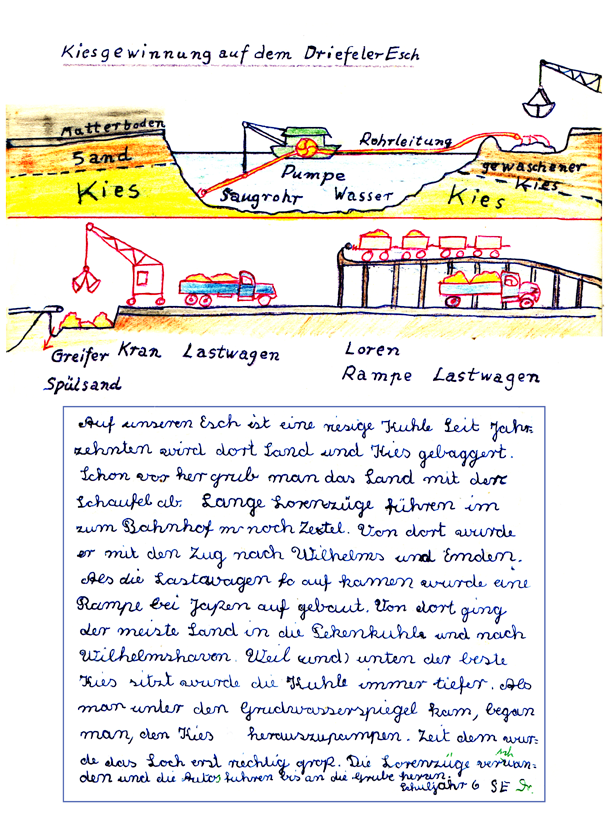 Kiesgewinnung auf dem Driefeler Esch
Matterboden
Sand
Kies
Pumpe
Saugrohr Wasser
Rohrleitung
gewaschener
Kies
Kies
Greifer Kran Lastwagen
Spülsand
Loren
Rampe Lastwagen
Auf unseren Esch ist eine riesige Kuhle Seit Jahr-
zehnten wird dort Sand und Kies gebaggert.
Schon vor her grub man das Sand mit der
Schaufel ab. Lange Lorenzüge führen im
zum Bahnhof noch Zetel. Von dort wurde
er mit den Zug nach Wilhelms und Emden.
Als die Lastwagen auf kamen wurde eine
Rampe bei auf gebaut. Von dort ging
der meiste Sand in die Pekenkuhle und nach
Wilhelmshaven. Weil (und) unten der beste
Kies sitzt wurde die Kuhle immer tiefer. Als
man unter den Grudwasserspiegel kam, began
man, den Kies herauszupampen. Zeit dem wur-
de das Loch erst richtig groß. Die Lorenzüge verschwan-
den und die Autos fuhren bis an die Grube heran.
Schuljahr 6 SE